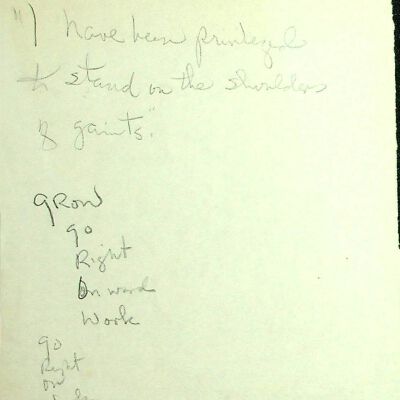 "I have been privileged
to stand on the shoulders
of gaints."
GROW
go
Right
On ward
Work
go
Right
on